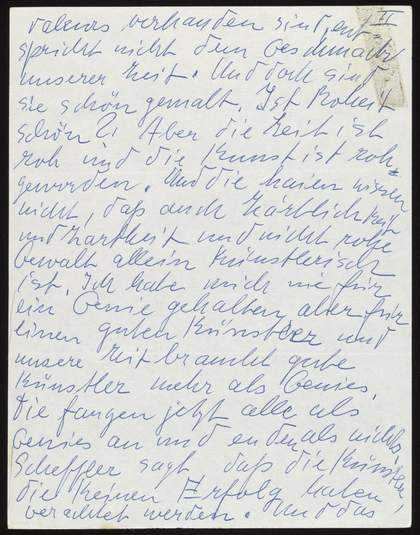 II
valeurs vorhanden sind, ent-
spricht nicht dem Geschmack
unserer Zeit. Und doch sind
sie schön gemalt. Ist Roheit
schön?! Aber die Zeit ist
roh und die Kunst ist roh
geworden. Und die Laien wissen
nicht, daß auch Zärtlichkeit
und Zartheit und nicht rohe
Gewalt allein künstlerisch
ist. Ich habe mich nie für
ein Genie gehalten, aber für
einen guten Künstler und
unsere Zeit braucht gute
Künstler mehr als Genies.
Die fangen jetzt alle als
Genies an und enden als nichts.
Scheffler sagt, daß die Künstler,
die keinen Erfolg haben,
verachtet werden. Und das